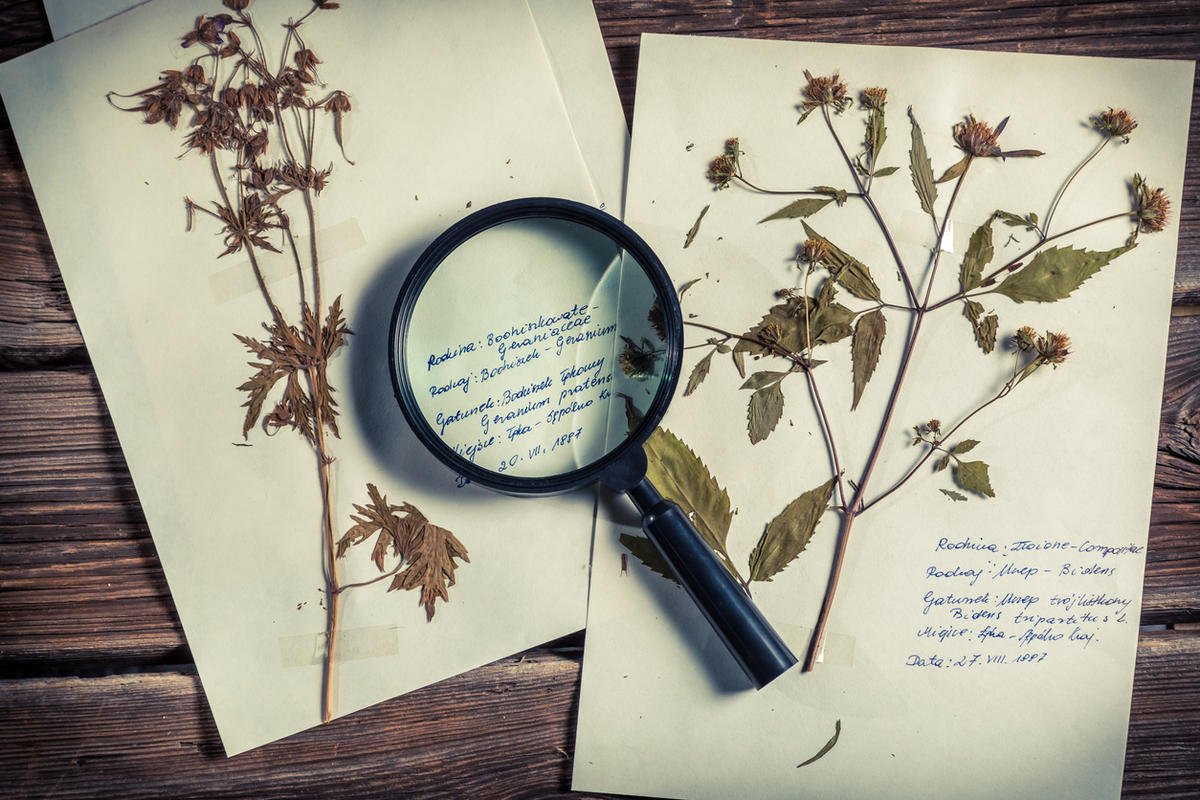 Rodzina: Bodziszkowate -
Geraniaceae
Rodzaj: Bodziszek - Geranium
Gatunek: Bodziszek łąkowy
Geranium pratens
Miejsce: Łąka - Sępólno Kr
20. VII. 1987
Rodzina: Złożone - Compositae
Rodzaj: Uczep - Bidens
Gatunek: Uczep trójlistkowy
Bidens tripartitus L.
Miejsce: Łąka - Sępólno Kraj.
Data: 27. VIII. 1987